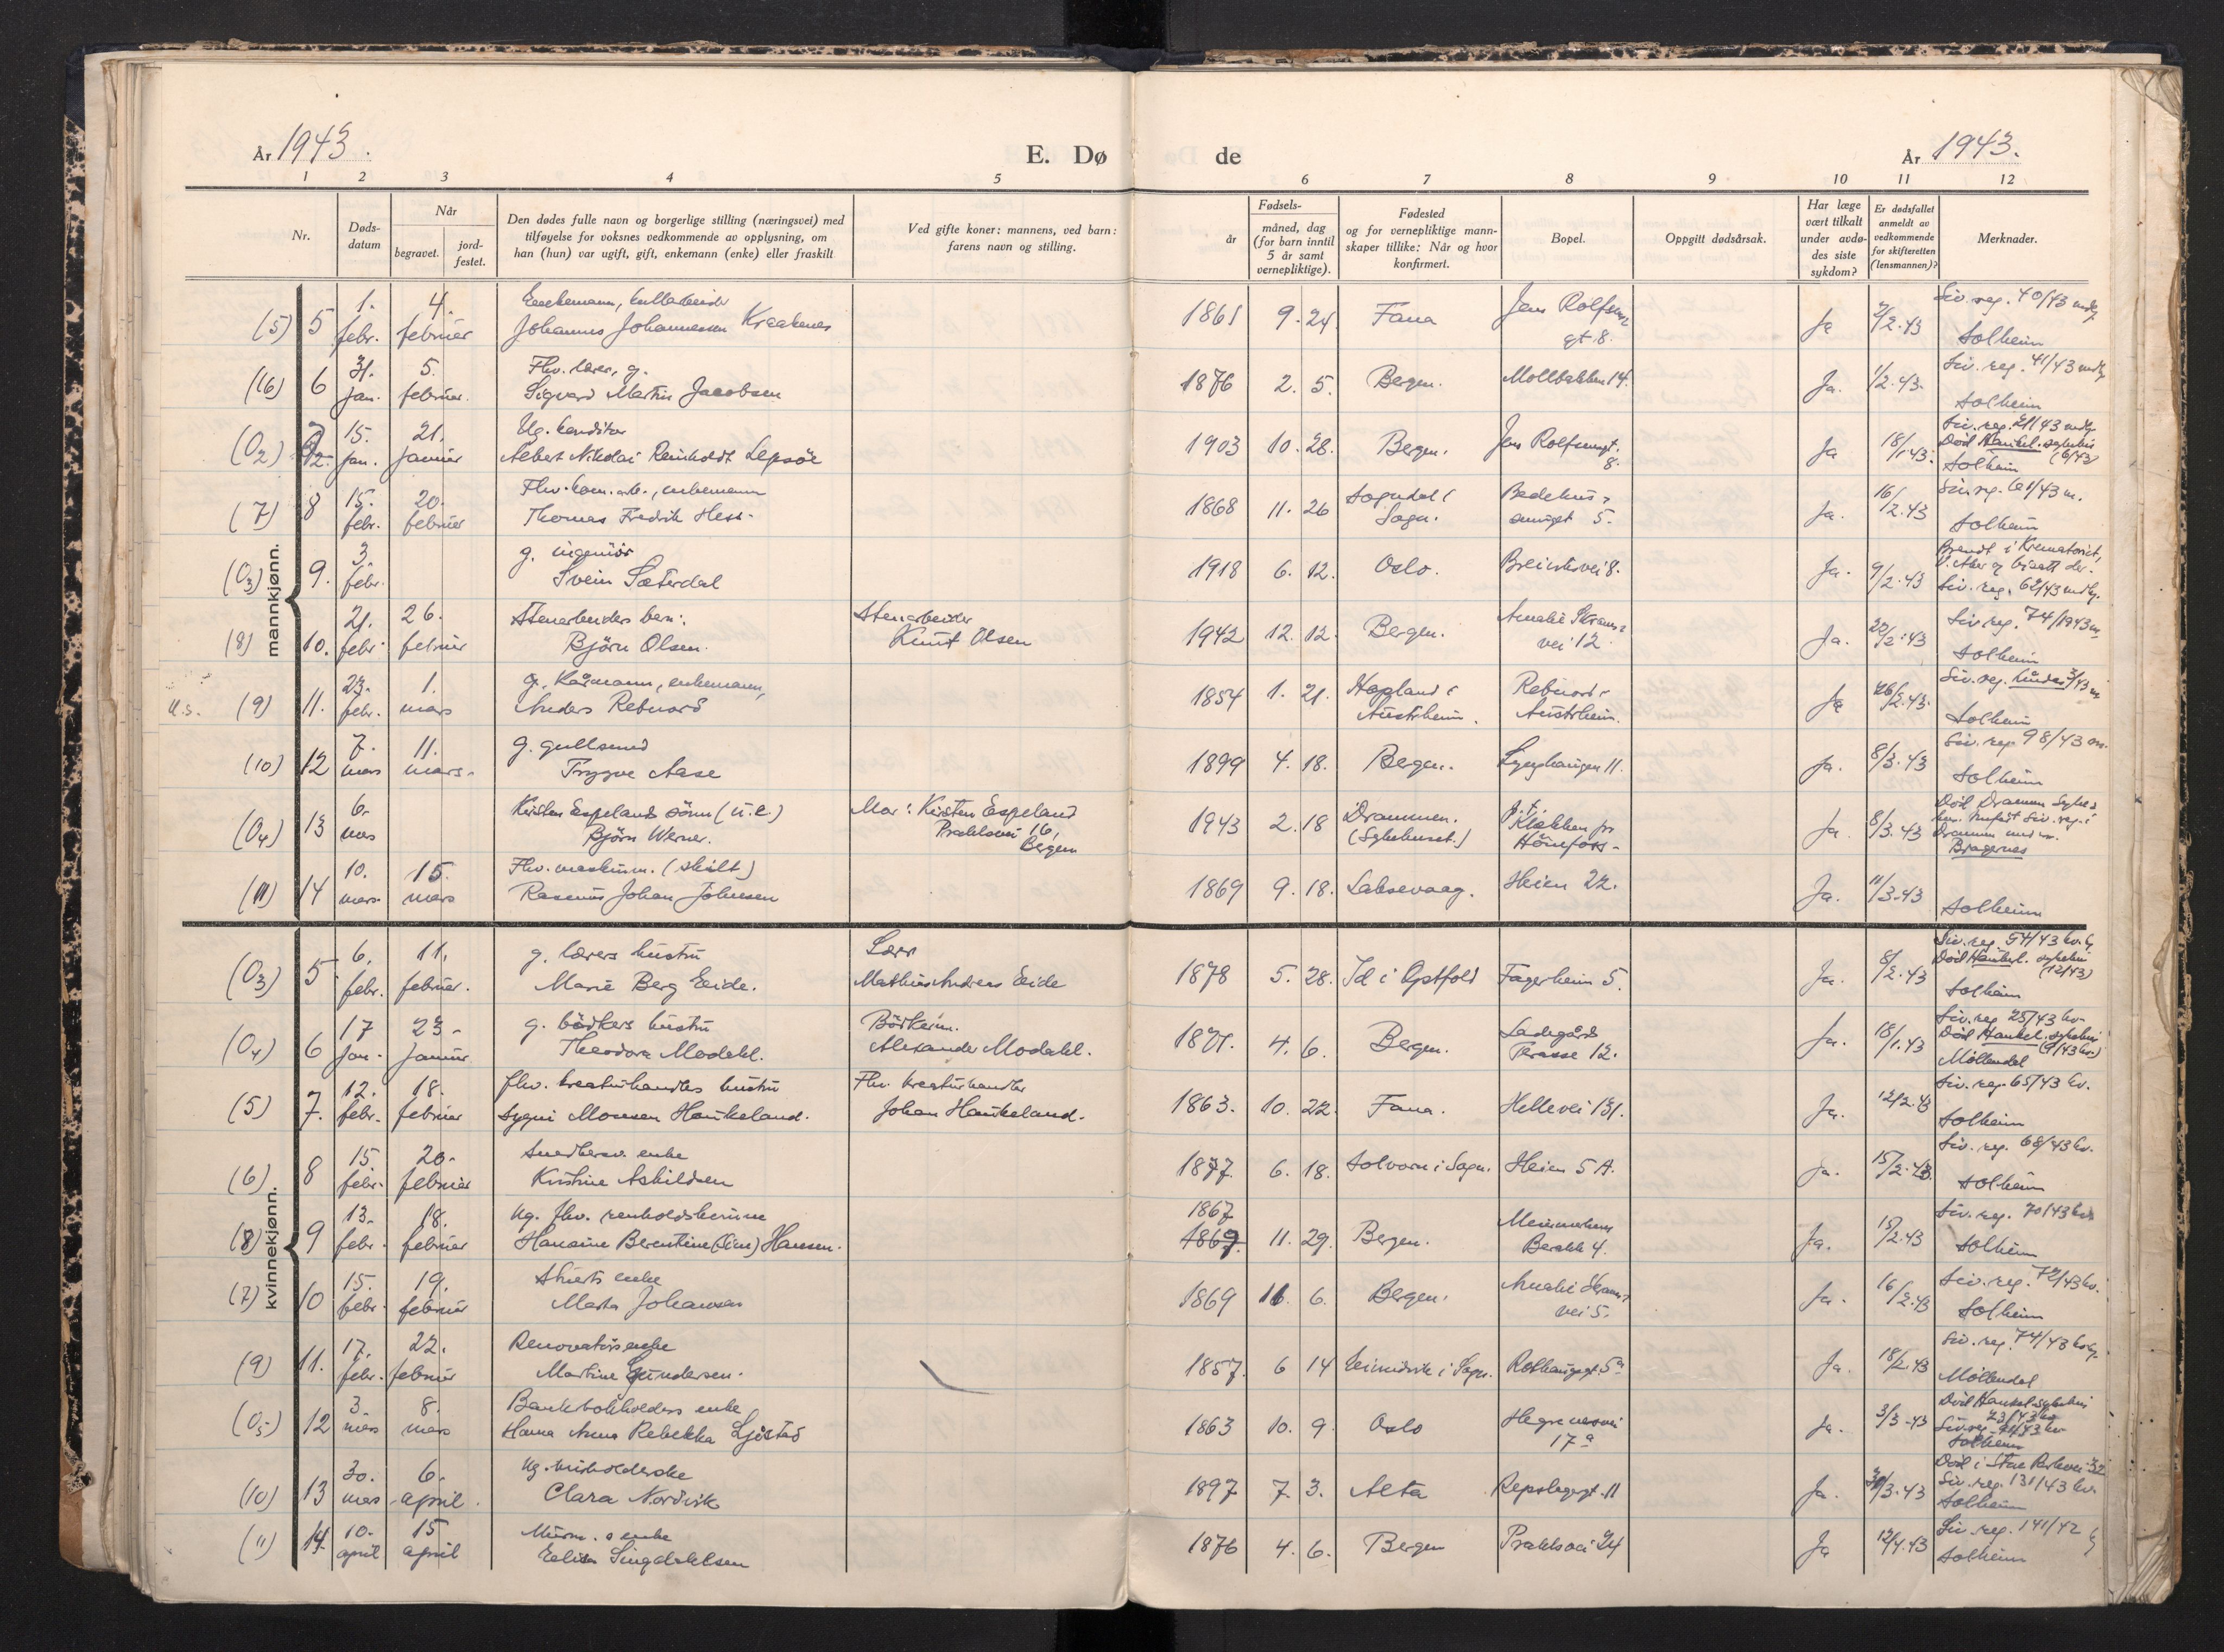 År 1943.
E. Dø
de
År 1943.
1 2 3 4 5 6 7 8 9 10 11 12
Nr.
Døds-
datum
Når
begravet.
jord-
festet.
Den dødes fulle navn og borgerlige stilling (næringsvei) med
tilføyelse for voksnes vedkommende av opplysning, om
han (hun) var ugift, gift, enkemann (enke) eller fraskilt
Ved gifte koner: mannens, ved barn:
farens navn og stilling.
Fødsels-
år
måned, dag
(for barn inntil
5 år samt
vernepliktige).
Fødested
og for vernepliktige mann-
skaper tillike: Når og hvor
konfirmert.
Bopel.
Oppgitt dødsårsak.
Har læge
vært tilkalt
under avdø-
des siste
sykdom?
Er dødsfallet
anmeldt av
vedkommende
for skifteretten
(lensmannen)?
Merknader.
mannkjønn.
1. 4. Enkemann, Siv. reg. 40/43
(5) 5 febr. februar Johannes Johannessen Kraakenes 1861 9. 24. Fana Jens Rolfsens gt. 8. Ja 2/2.43 Solheim
31. 5. Flv. lærer, g. Siv. reg. 41/43
(16) 6 jan. februar. Sigvard Martin Jacobsen 1876 2. 5. Bergen. Mollbakken 14. Ja. 1/2.43. Solheim
15. 21. Ug. konditor Siv. reg. 21/43
(02) jan. januar Albert Nikolai Reinholdt Lepsöe 1903 10. 28. Bergen. Jens Rolfsensgt. 8. Ja 18/1.43. Död Haukel. sykehus (6/43) Solheim
15. 20. Flv. kom. arb., enkemann Siv. reg. 61/43 m.
(7) 8 febr. februar Thomas Fredrik Hess. 1868 11. 26 Sogndal i Sogn. Bedehus- smuget 5. Ja. 16/2.43 Solheim
3. g. ingeniör Brendt i Krematoriet,
(03) 9. febr. Svein Sæterdal 1918 6. 12. Oslo. Breistensvei 8. Ja. 9/2.43 Siv. reg. 62/43
21. 26. Stenarbeiders barn: Stenarbeider Amalie Skrams- Siv. reg. 74/1943
(8) 10. febr. februar Björn Olsen. Knut Olsen 1942 12. 12. Bergen. vei 12. Ja. 22/2.43 Solheim
23. 1. g. Kårmann, enkemann, Hopland i Rebnord i Siv. reg. Lindås 3/43 m
U.S. (9) 11. febr. mars Anders Rebnord 1854 1. 21. Austrheim. Austrheim. Ja 26/2.43. Solheim
7. 11. g. gullsmed Siv. reg. 98/43 m.
(10) 12 mars mars. Trygve Aase 1899 4. 18. Bergen. Lynghaugen 11. Ja. 8/3.43 Solheim
6. Kirsten Espelands sönn (u.e.) Mor: Kirsten Espeland Drammen. p.t. Död Drammen Sykeh.
(04) 13 mars Björn Werner. 16, Bergen 1943 2. 18 (Sykehuset.) Klekken pr Hönefoss. Ja. 8/3.43 Bragernes
10. 15. Flv. maskinm. (skilt)
(11) 14 mars mars Rasmus Johan Johnsen 1869 9. 18. Laksevaag. Heien 22. Ja. 11/3.43 Solheim
kvinnekjønn.
6. 11. g. lærers hustru Lærer Siv. reg. 54/43
(03) 5 febr. februar. Marie Berg Eide. Mathias Andreas Eide 1878 5. 28. Id i Östfold Fagerheim 5. Ja. 8/2.43 Död Haukel. sykehus (12/43) Solheim
17 23. g. bödkers hustru Bödkerm. Ladegårds Siv. reg. 25/43 kv.
(04) 6 jan. januar. Theodora Modahl. Alexander Modahl. 1871. 4. 6. Bergen. Terasse 12. Ja. 18/1.43 Död Haukel. sykehus (9/43 kv.) Möllendal
12. 18. flv. kreaturhandlers hustru Flv. kreaturhandler Siv. reg. 65/43 kv.
(5) 7. febr. februar Sygni Monsen Haukeland. Johan Haukeland. 1863. 10. 22. Fana. Hellevei 131. Ja. 12/2.43 Solheim
15 20. Snedkersv. enke Siv. reg. 68/43 kv.
(6) 8 febr. februar Kristine Askildsen 1877. 6. 18. Solvorn i Sogn. Heien 5 A. Ja. 15/2.43. Solheim
13. 18. Ug. flv. renholdskvinne 1867 Siv. reg. 70/43 kv
(8) 9 febr. februar Hansine Berentine (Sina) Hansen. 1869. 11. 29. Bergen. 4. Ja. 15/2.43 Solheim
15. 19. enke Amalie Skrams- Siv. reg. 72/43 kv.
(7) 10 febr. februar Marta Johansen 1869 11. 6. Bergen. vei 5. Ja. 16/2.43 Solheim
17. 22. Renovatörs enke Siv. reg. 74/43
(9) 11. febr. februar Martine Gundersen. 1857. 6 14 Eivindvik i Sogn. Rothaugsgt. 5a Ja. 18/2.43 Möllendal
3. 8. Bankbokholders enke Död Haukel. sykehus 23/43 kv
(05) 12 mars mars Hanna Anna Rebekka Ljöstad 1863 10. 9. Oslo Hegrenesvei 17a Ja. 3/3.43 Siv. reg. 91/43 kv Solheim
30. 6. Ug. husholderske Död i Store Parkvei 32
(10) 13 mars april. Clara Nordvik 1897 7. 3. Alta Repslagergt. 11 Ja. 30/3.43 Siv. reg. 131/43 kv. Solheim
10. 15 Murm.s enke Siv. reg. 141/42
(11) 14. april april Singdahlsen 1876 4. 6. Bergen 24 Ja 12/4.43 Solheim